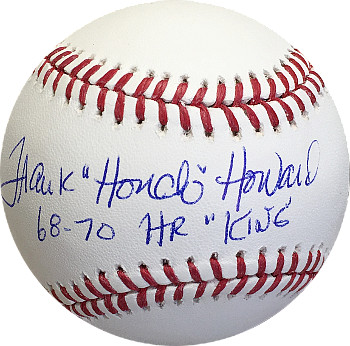 Frank "Hondo" Howard
68-70 HR "KING"